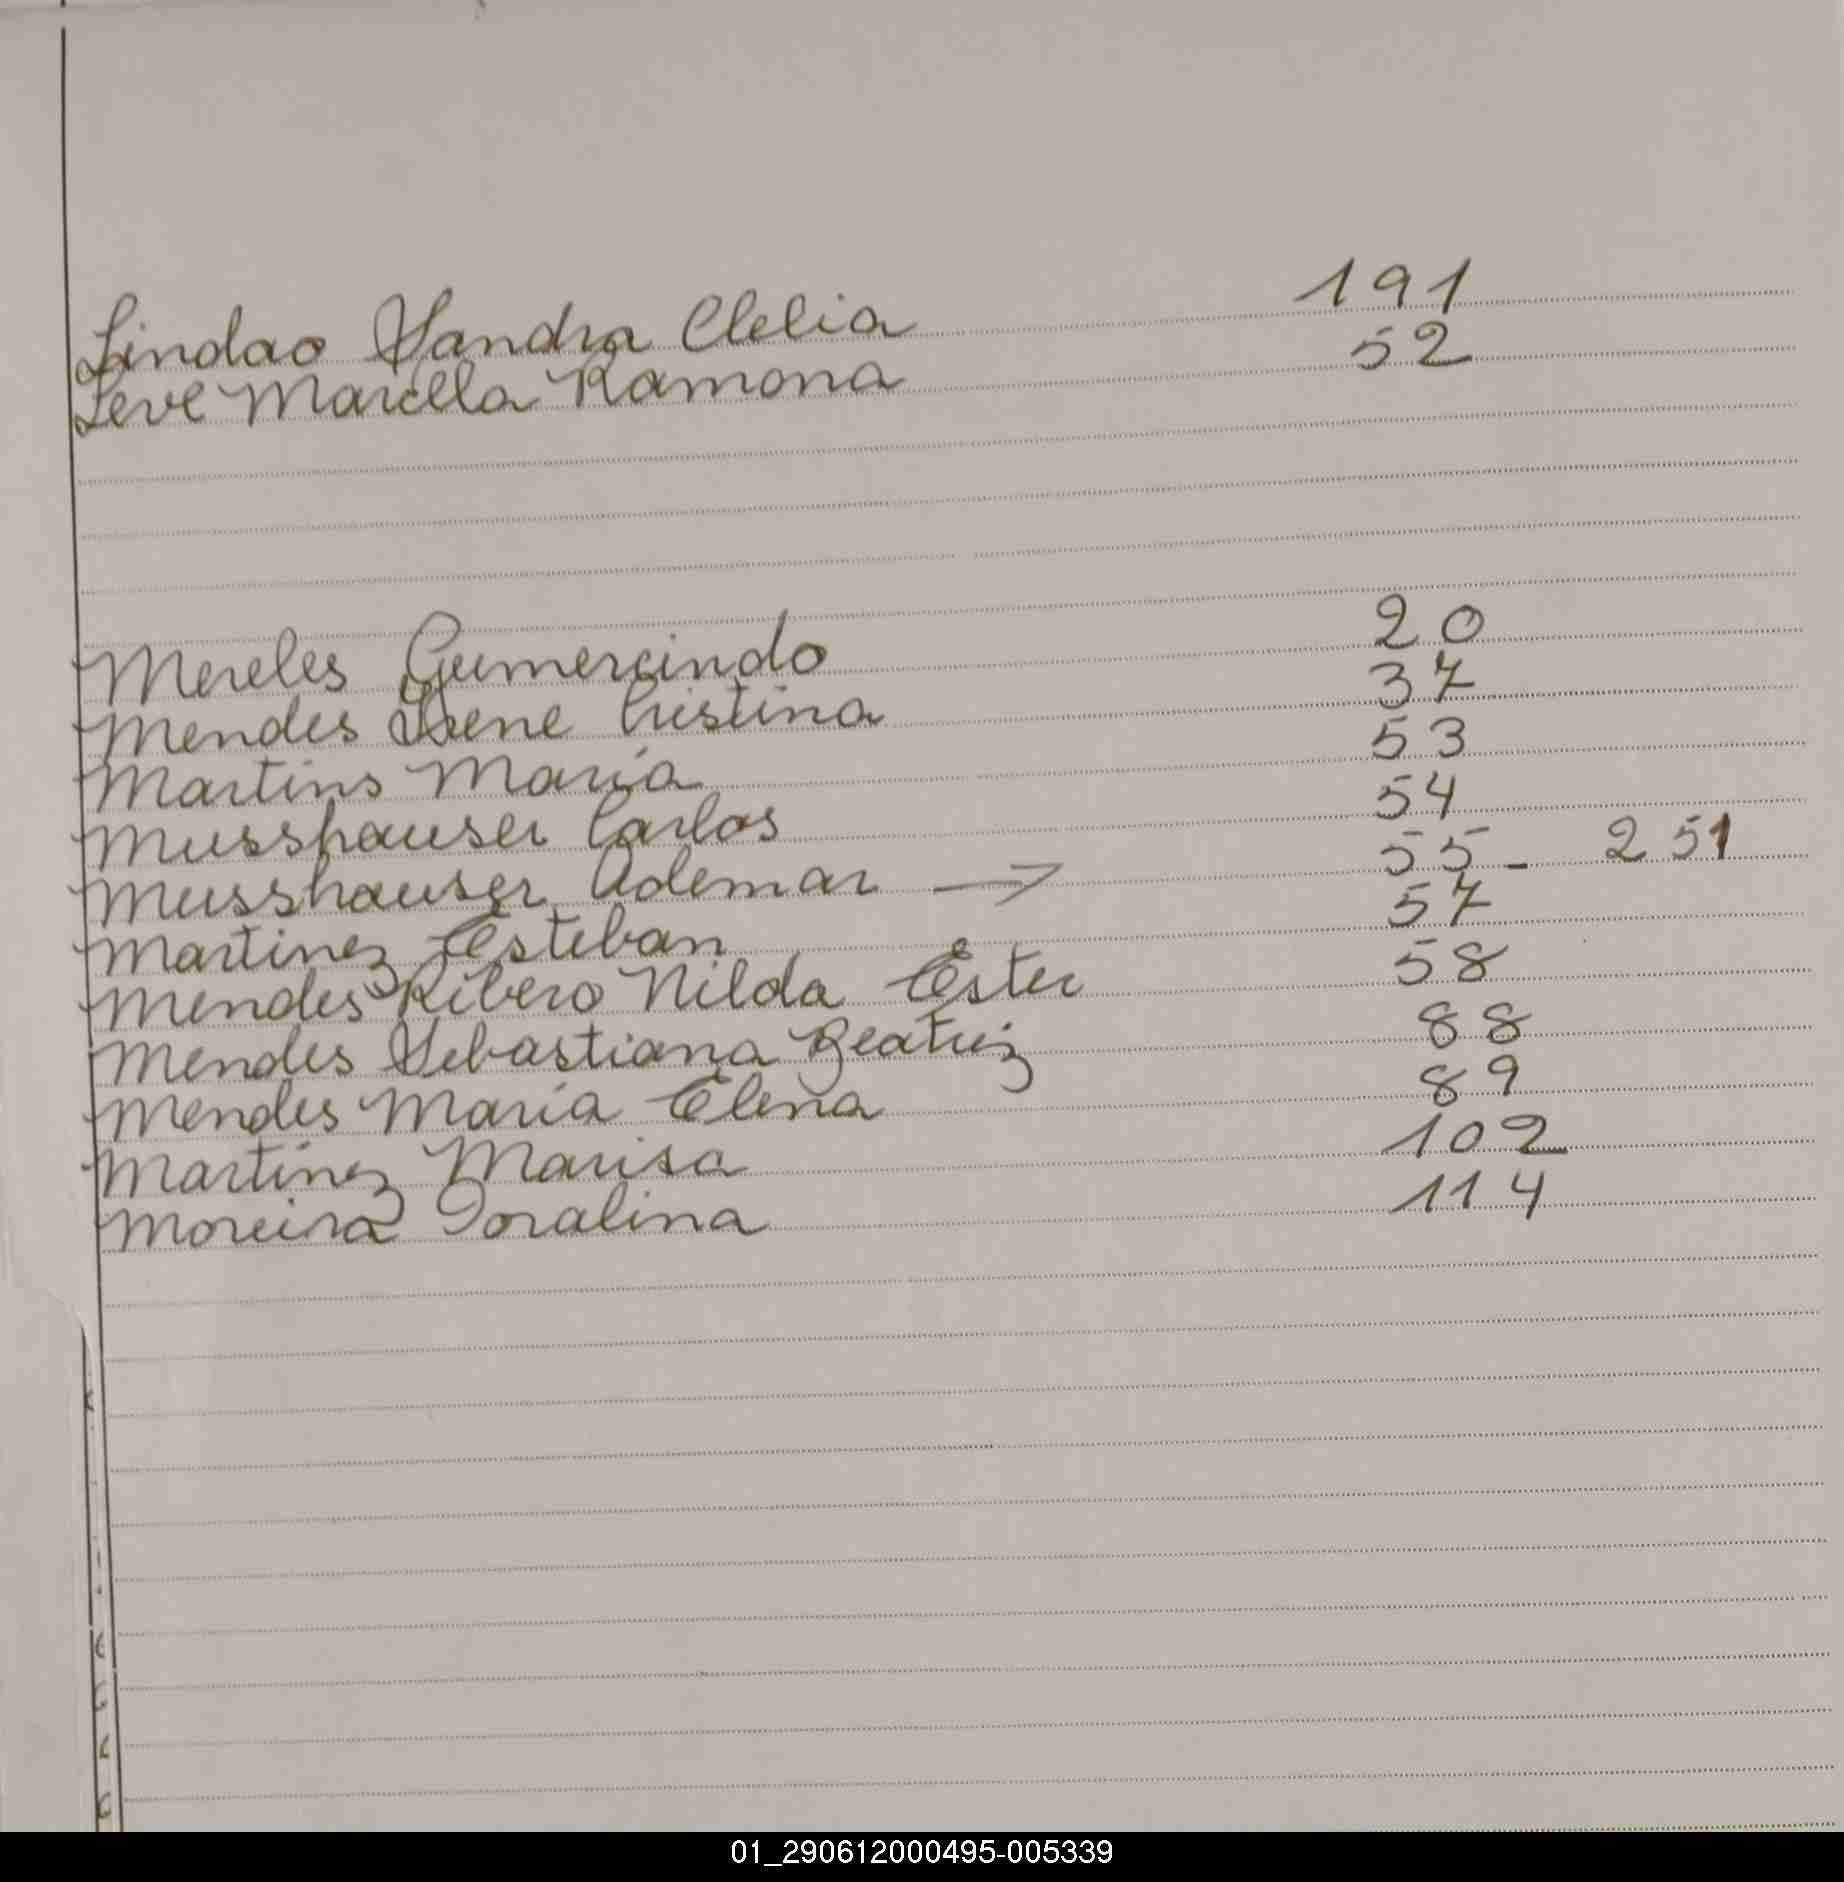 Lindao Sandra Clelia 191
Leve Marcela Ramona 52
Mereles Gumercindo 20
Mendes Irene Cristina 37
Martins Maria 53
Musshauser Carlos 54
Musshauser Ademar → 55 - 251
Martinez Esteban 57
Mendes Ribero Nilda Ester 58
Mendes Sebastiana Beatriz 88
Mendes Maria Elena 89
Martinez Marisa 102
Moreira Joralina 114
01_290612000495-005339